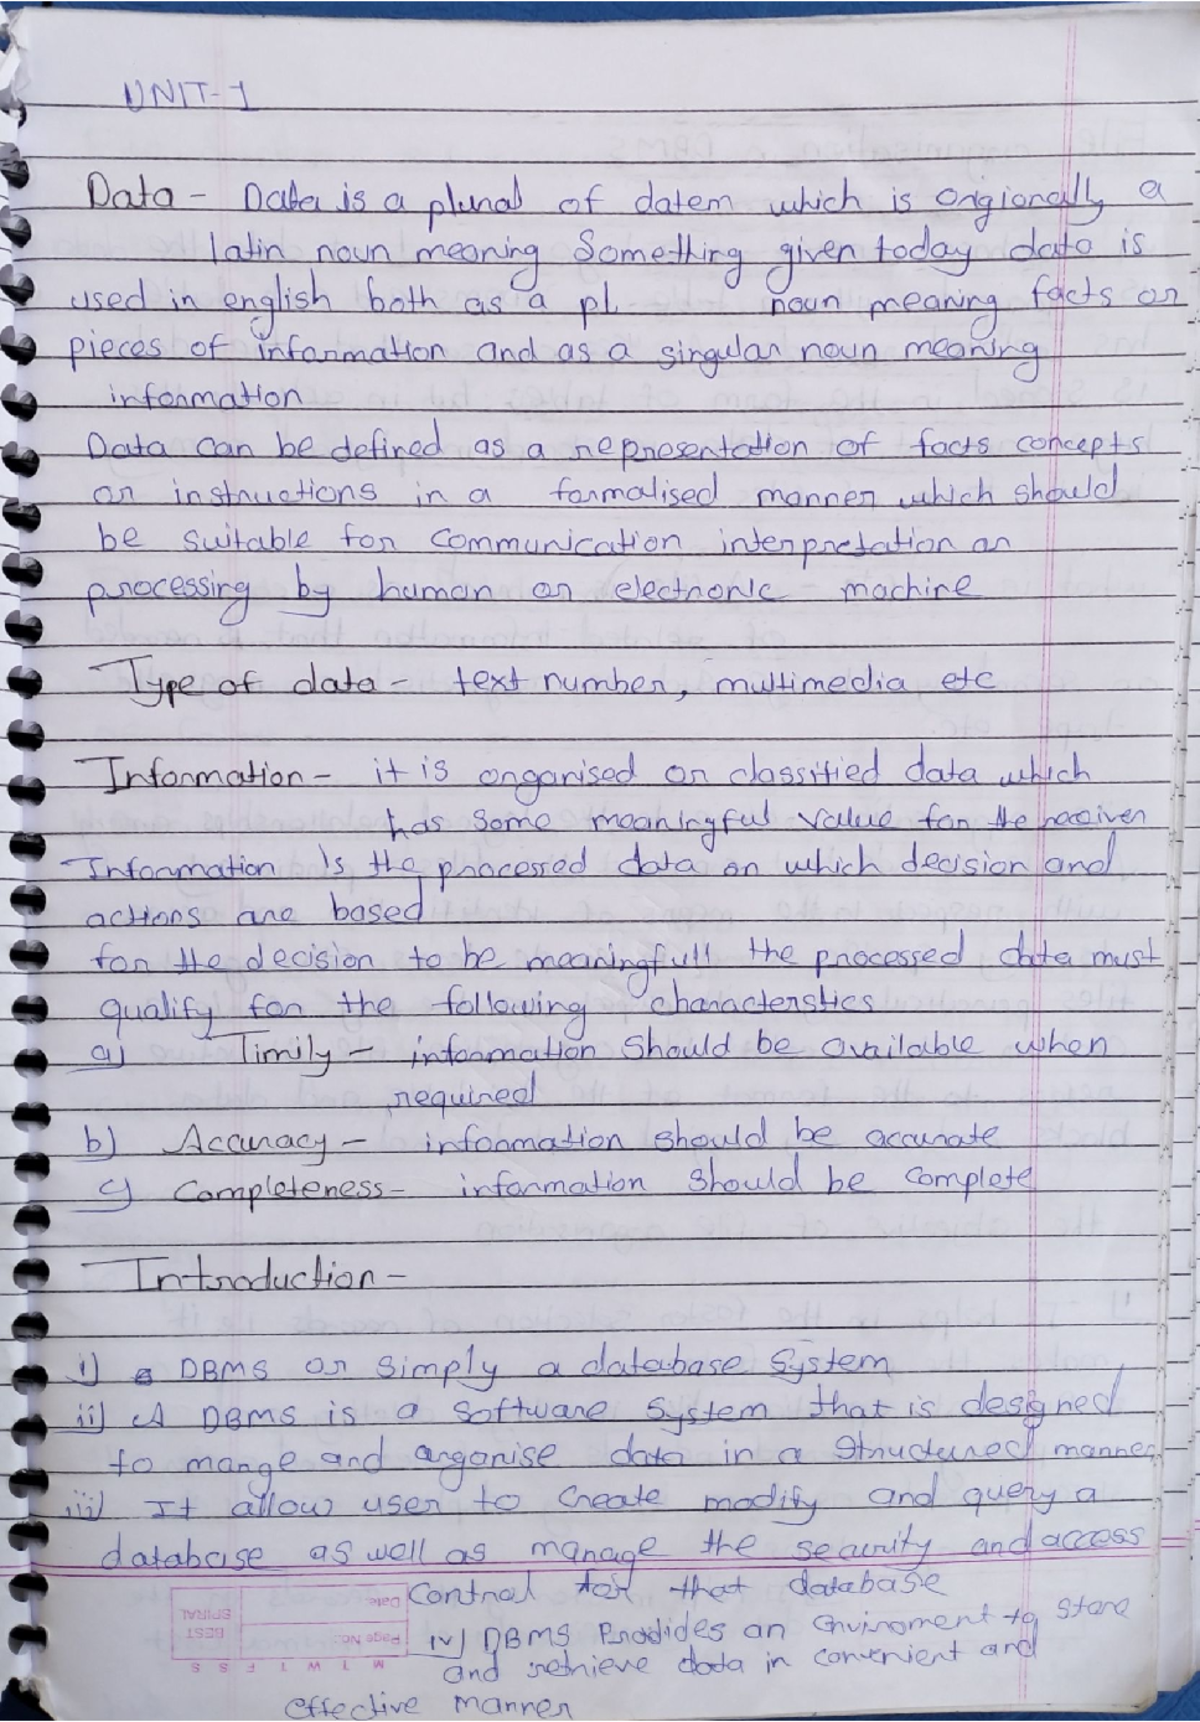 UNIT-1
Data - Data is a plural of datem which is origionally a
latin noun meaning Something given today data is
used in english both as a pl noun meaning facts or
pieces of information and as a singular noun meaning
information
Data can be defined as a representation of facts concepts
or instructions in a formalised manner which should
be suitable for communication interpretation or
processing by human or electronic - machine
Type of data - text number, multimedia etc
Information - it is organised or classified data which
has some meaningful value for the receiver
Information Is the processed data on which decision and
actions are based
for the decision to be meaningfull the processed data must
qualify for the following characterstics
a) Timily - information should be available when
required
b) Accuracy - information should be accurate
c) Completeness - information should be complete
Introduction -
i) DBMS or simply a database System
ii) A DBMS is a software system that is designed
to mange and argonise data in a structured manner
iii) It allow user to create modify and query a
database as well as manage the security and access
Control for that database
iv) DBMS Prodides an enviroment to store
and retrieve data in convenient and
effective manner
Date
Page No.:
BEST
SPIRAL
M T W T F S S